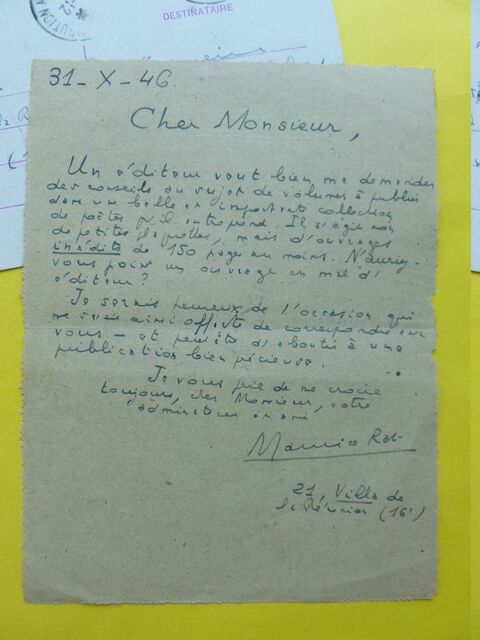 DESTINATAIRE
31-X-46
Cher Monsieur,
Un éditeur veut bien me demander
des conseils au sujet de volumes à publier
dans une belle et importante collection
de poètes qu'il entreprend. Il s'agit non
de petites plaquettes, mais d'ouvrages
inédits de 150 pages au moins. N'auriez-
vous point un ouvrage en mal d'
éditeur?
Je serais heureux de l'occasion qui
me serait ainsi offerte de correspondre avec
vous — et peut-être d'aboutir à une
publication bien précieuse.
Je vous prie de me croire
toujours, cher Monsieur, votre
admirateur et ami
Maurice Rat
21, Villa de
la Réunion (16e)